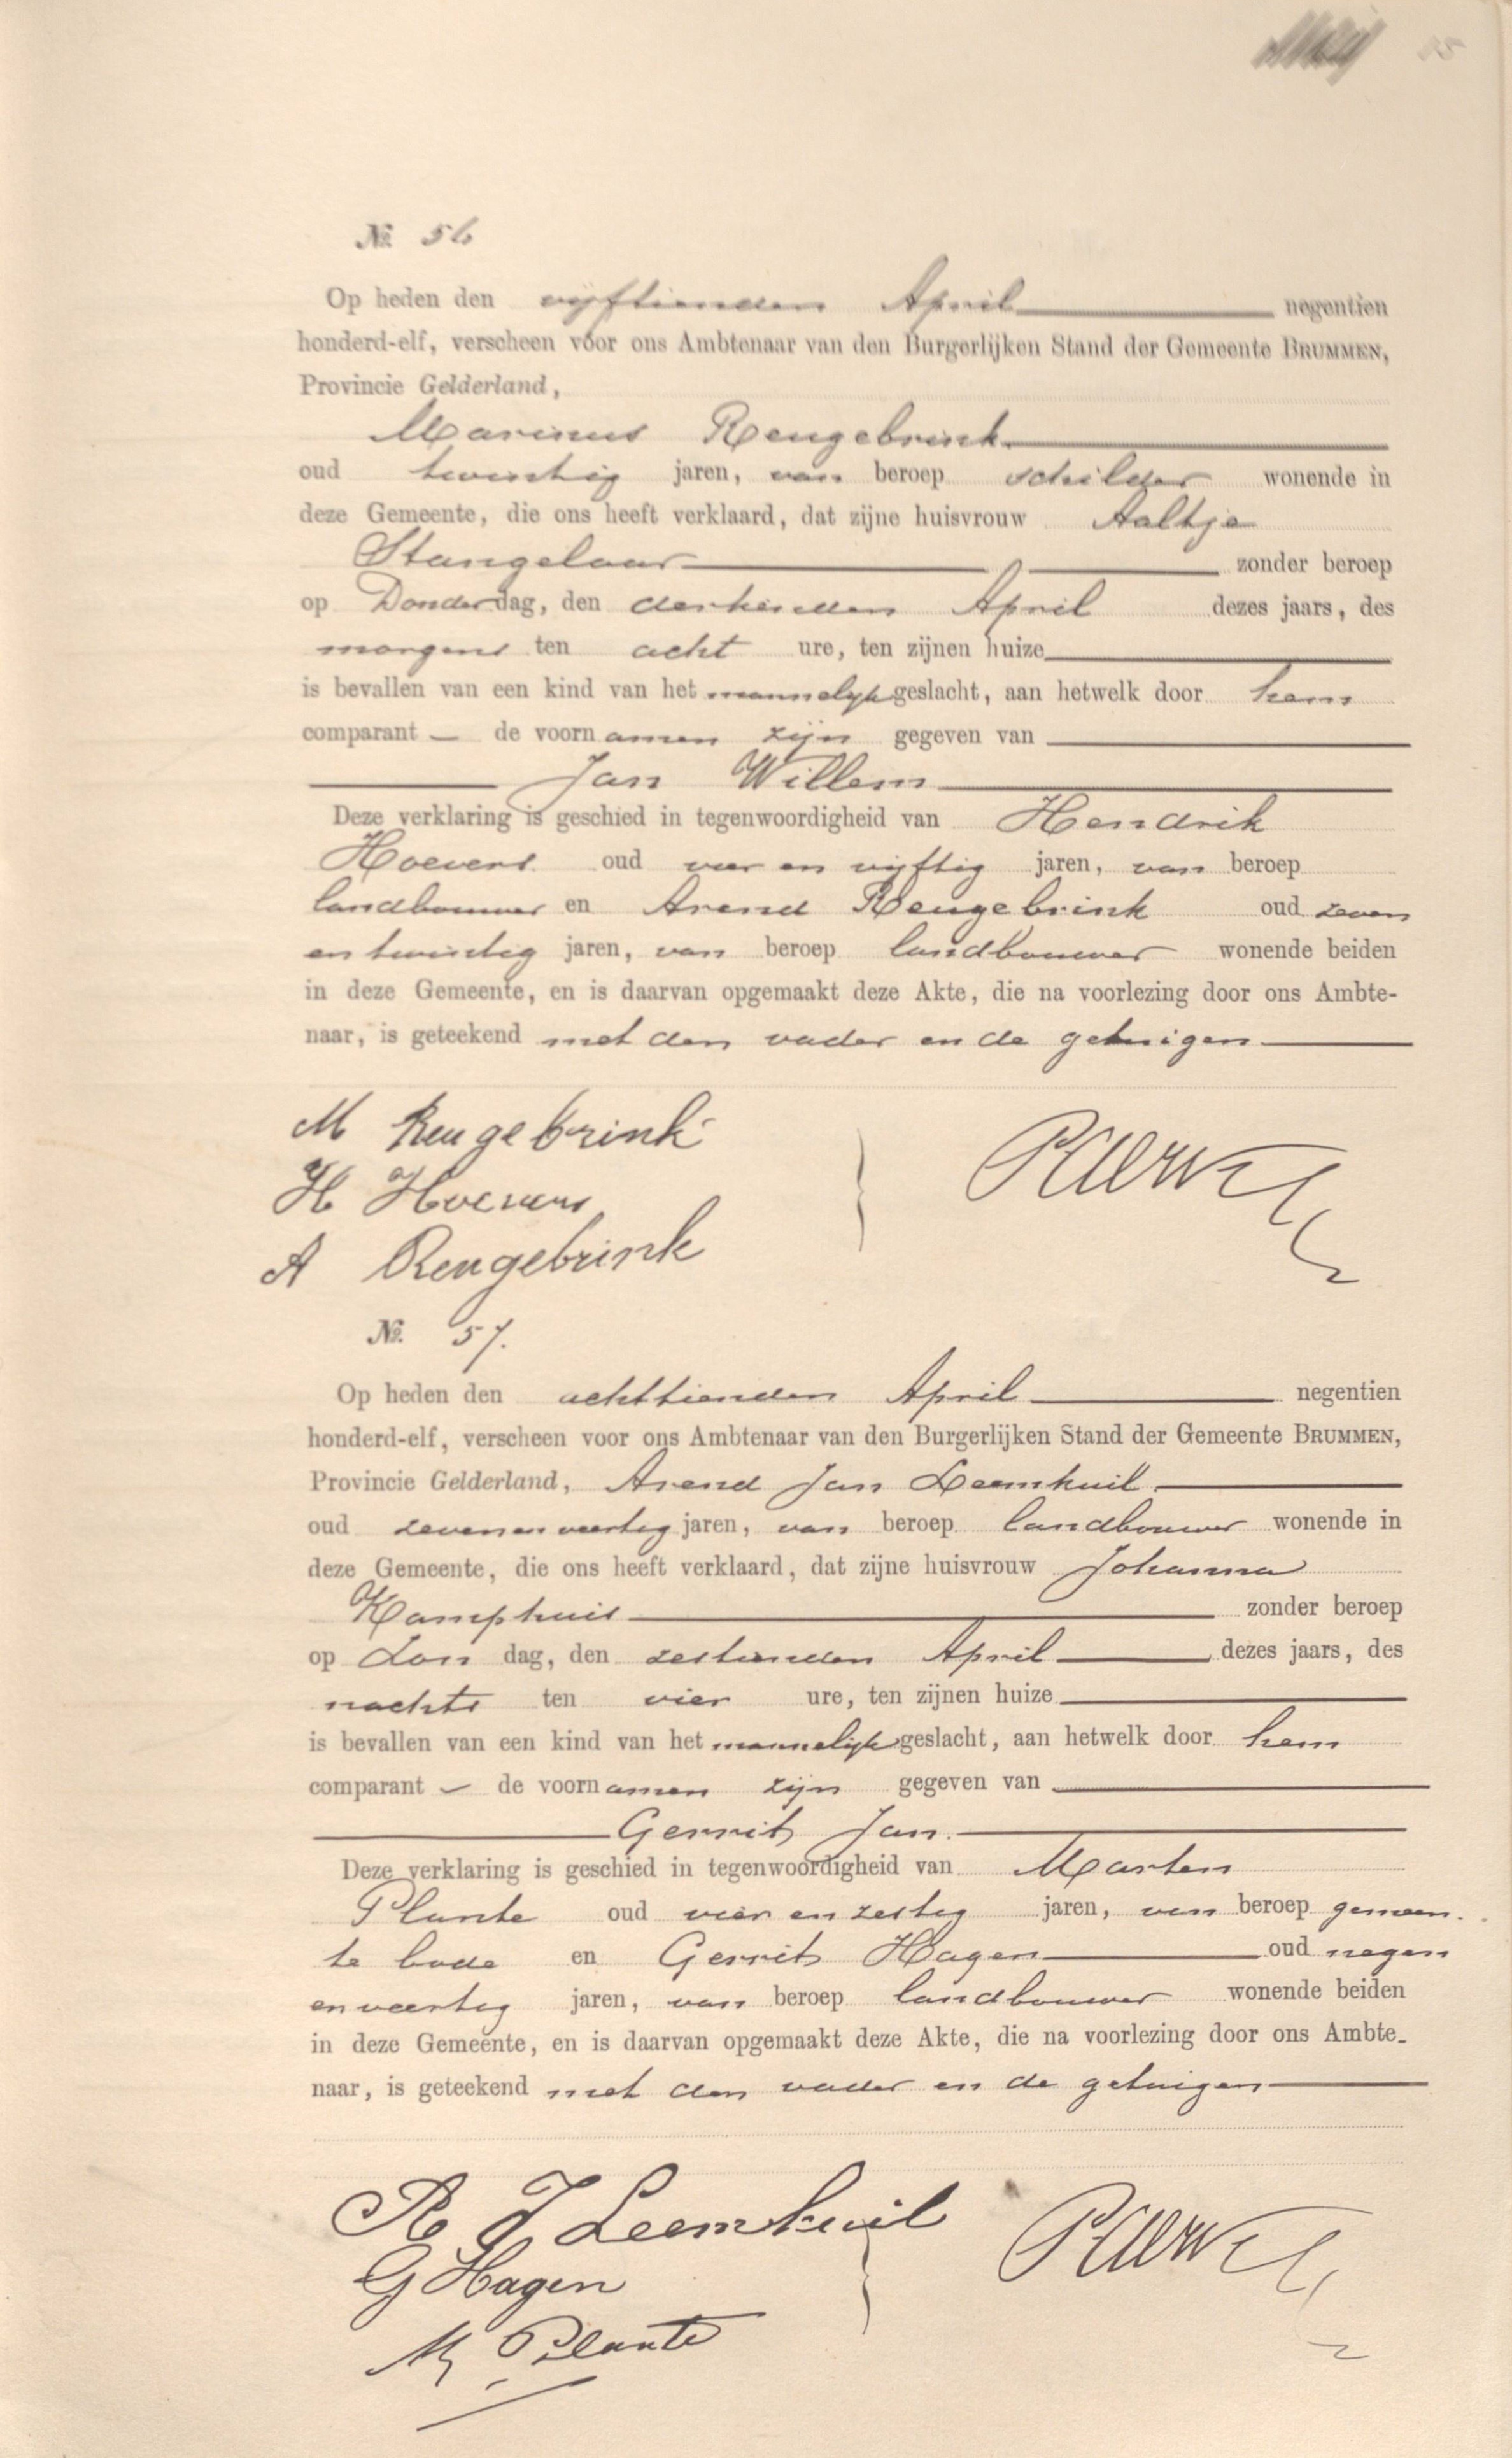 № 56
Op heden den vijftienden April negentien
honderd-elf, verscheen voor ons Ambtenaar van den Burgerlijken Stand der Gemeente BRUMMEN,
Provincie Gelderland,
Marinus Rengebrink
oud twintig jaren, van beroep schilder wonende in
deze Gemeente, die ons heeft verklaard, dat zijne huisvrouw Aaltje
Stangelaar zonder beroep
op Donderdag, den dertienden April dezes jaars, des
morgens ten acht ure, ten zijnen huize
is bevallen van een kind van het mannelijk geslacht, aan hetwelk door hem
comparant — de voornamen zijn gegeven van
Jan Willem
Deze verklaring is geschied in tegenwoordigheid van Hendrik
Hoevers oud vier en vijftig jaren, van beroep
landbouwer en Arend Rengebrink oud zeven
en twintig jaren, van beroep landbouwer wonende beiden
in deze Gemeente, en is daarvan opgemaakt deze Akte, die na voorlezing door ons Ambte-
naar, is geteekend met den vader en de getuigen
M Rengebrink
H Hoevers
A Rengebrink
№. 57.
Op heden den achttienden April negentien
honderd-elf, verscheen voor ons Ambtenaar van den Burgerlijken Stand der Gemeente BRUMMEN,
Provincie Gelderland, Arend Jan Leemkuil
oud zevenenveertig jaren, van beroep landbouwer wonende in
deze Gemeente, die ons heeft verklaard, dat zijne huisvrouw Johanna
Kamphuis zonder beroep
op Zon dag, den zestienden April dezes jaars, des
nachts ten vier ure, ten zijnen huize
is bevallen van een kind van het mannelijk geslacht, aan hetwelk door hem
comparant — de voornamen zijn gegeven van
Gerrit Jan.
Deze verklaring is geschied in tegenwoordigheid van Marten
Plante oud vier en zestig jaren, van beroep gemeen-
te bode en Gerrit Hagen oud negen
en veertig jaren, van beroep landbouwer wonende beiden
in deze Gemeente, en is daarvan opgemaakt deze Akte, die na voorlezing door ons Ambte-
naar, is geteekend met den vader en de getuigen
A J Leemkuil
G Hagen
M Plante